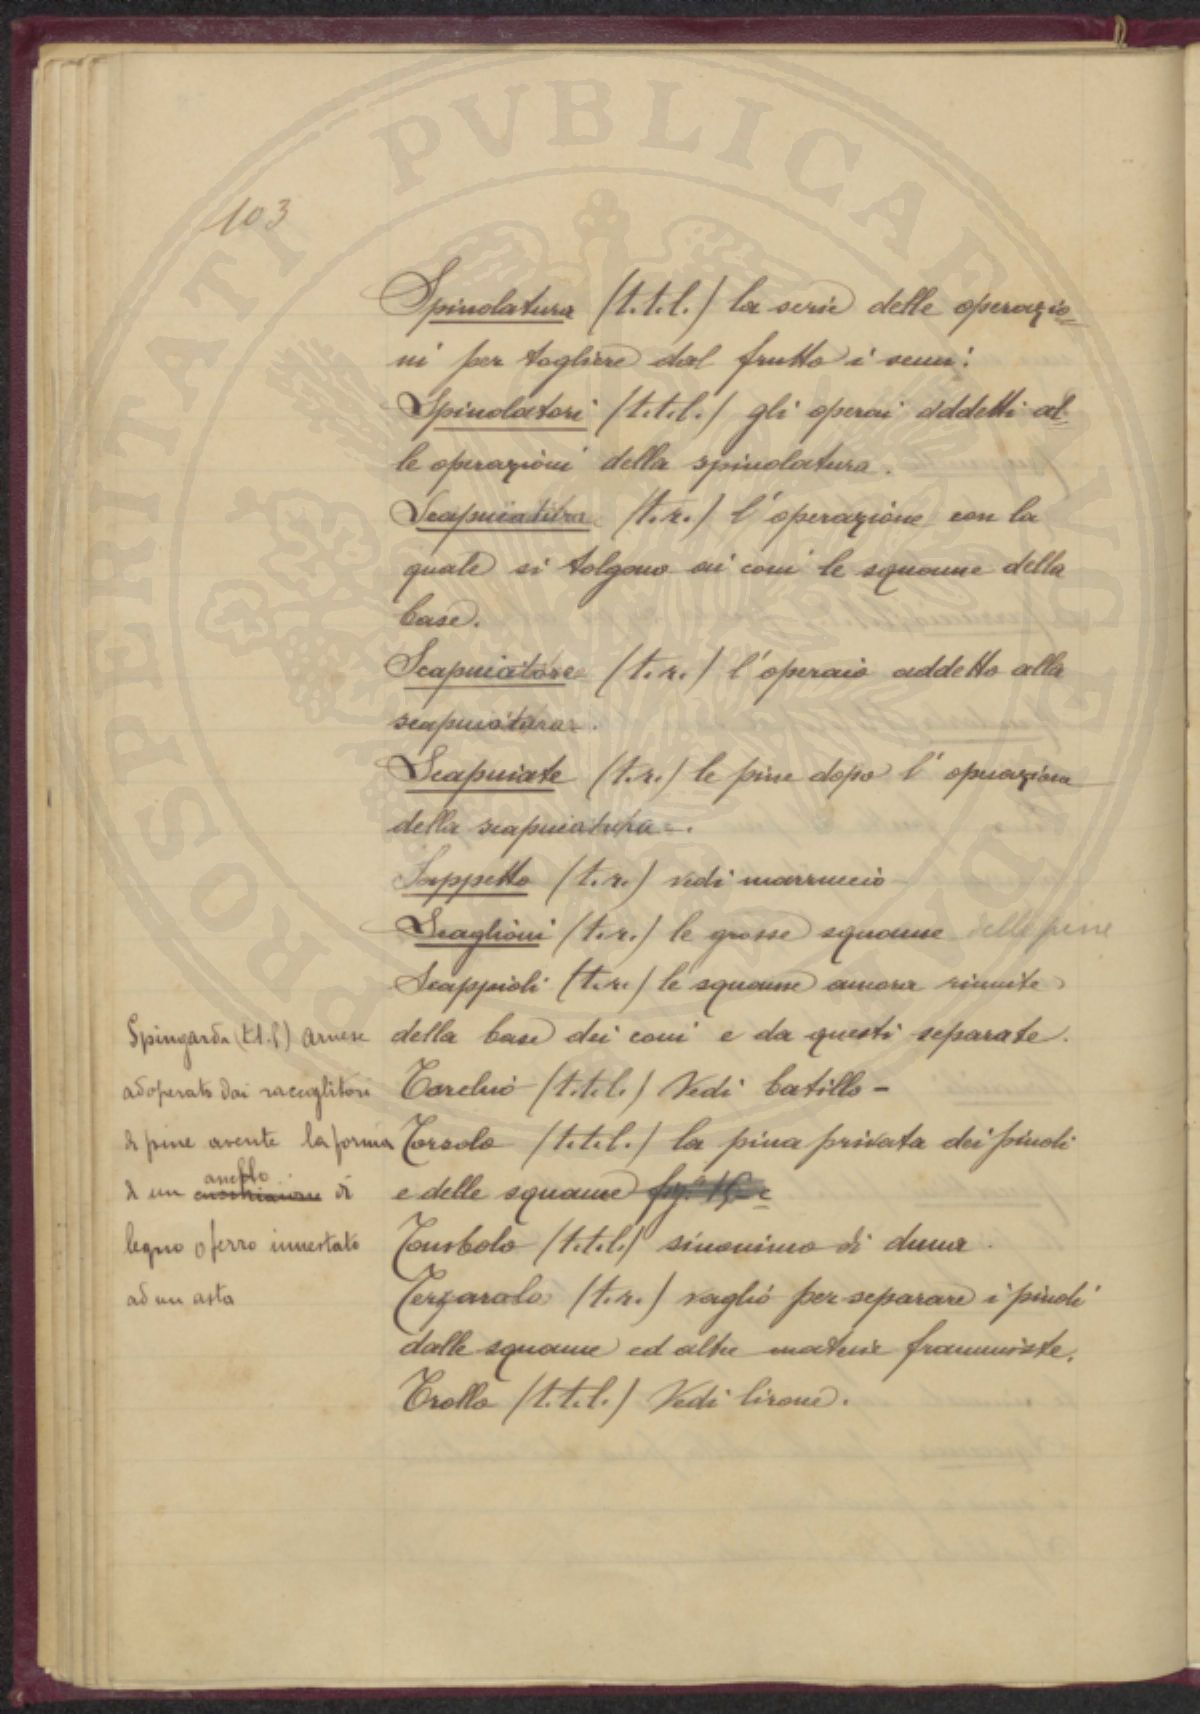 PROSPERITATI PVBLICAE AVGENDAE
103
Spinolatura (t.t.l.) la serie delle operazio=
ni per togliere dal frutto i semi.
Spinolatori (t.t.l.) gli operai addetti al-
le operazioni della spinolatura.
Scapuiatura (t.r.) l'operazione con la
quale si tolgono ai coni le squame della
base.
Scapuiatore (t.r.) l'operaio addetto alla
scapuiatura.
Scapuiate (t.r.) le pine dopo l'operazione
della scapuiatura.
Soppetto (t.r.) vedi marruccio
Scaglioni (t.r.) le grosse squame delle pine
Scappioli (t.r.) le squame ancora riunite
della base dei coni e da questi separate.
Torchio (t.t.l.) Vedi batillo -
Torsolo (t.t.l.) la pina privata dei pinoli
e delle squame
Tombolo (t.t.l.) sinonimo di duna.
Terzarolo (t.r.) vaglio per separare i pinoli
dalle squame ed altre materie frammiste.
Trollo (t.t.l.) Vedi lirone.
Spingarda (t.t.l.) arnese
adoperato dai raccoglitori
di pine avente la forma
di un anello di
legno o ferro innestato
ad un asta